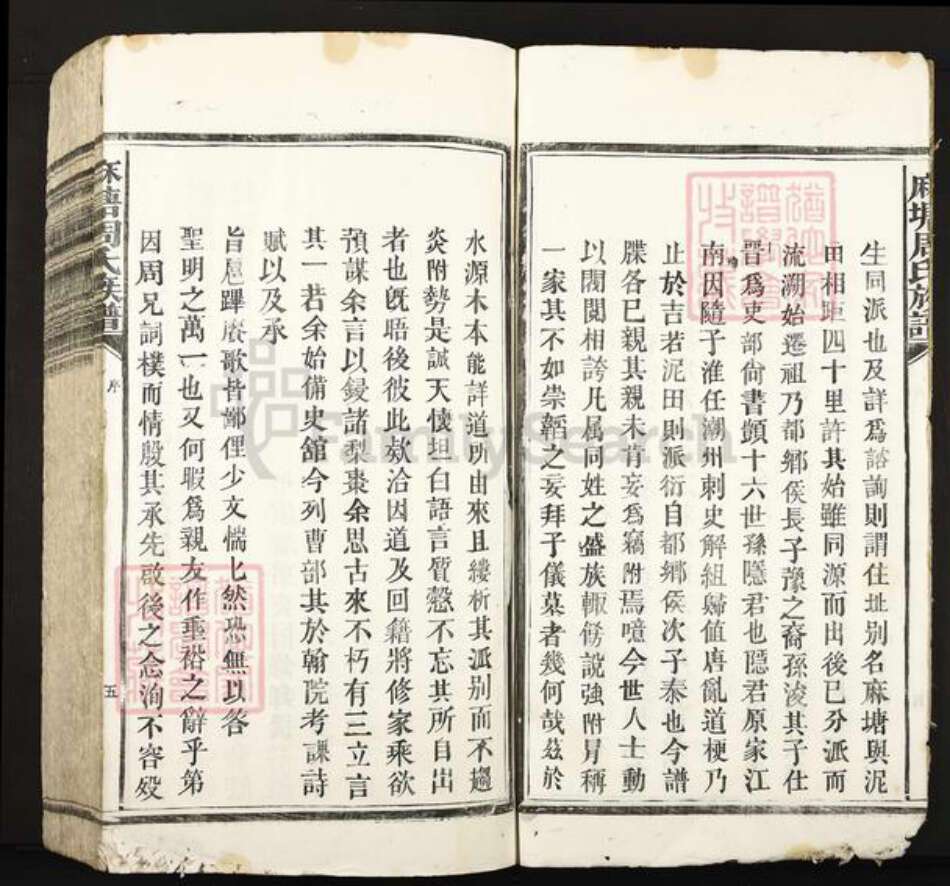 麻塘周氏族譜
生同派也及詳爲諮詢則謂住址別名麻塘與泥
田相距四十里許其始雖同源而出後已分派而
流溯始遷祖乃都鄉侯長子豫之裔孫浚其子仕
晉爲吏部尙書顗十六世孫隱君也隱君原家江
南因隨子淮任潮州刺史解組歸值唐亂道梗乃
止於吉若泥田則派衍自都鄉侯次子泰也今譜
牒各巳親其親未肯妄爲竊附焉噫今世人士動
以閥閱相誇凡属同姓之盛族輙傍說強附冐稱
一家其不如崇韜之妄拜子儀墓者幾何哉茲於
水源木本能詳道所由來且縷析其派別而不趨
炎附勢是誠天懷坦白語言質慤不忘其所自出
者也旣晤後彼此欵洽因道及回籍將修家乘欲
預謀余言以鋟諸梨棗余思古來不朽有三立言
其一若余始備史舘今列曹部其於翰院考課詩
賦以及承
旨賡歌皆鄙俚少文惴匕然恐無以答
聖明之萬一也又何暇爲親友作垂裕之辭乎第
因周兄詞樸而情殷其承先啟後之念洵不容歿
麻塘周氏族譜
序
五
FamilySearch